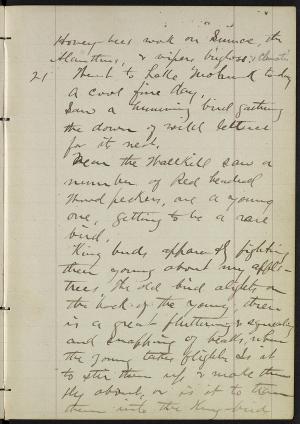 Honey bees work on Sumac, the
Ailanthus, & vipers bugloss, & Clematis
21 Went to Lake Mohonk today
a cool fine day.
Saw a humming bird gathering
the down of wild lettuce
for its nest.
Near the Wallkill saw a
number of Red headed
Wood peckers, one a young
one, getting to be a rare
bird.
King birds apparently fighting
their young about my apple-
trees, the old bird alights on
the back of the young, there
is a great fluttering & squealing
and snapping of beaks, when
the young takes flight. Is it
to stir them up, & make them
fly about, or is it to
them into the King-bird